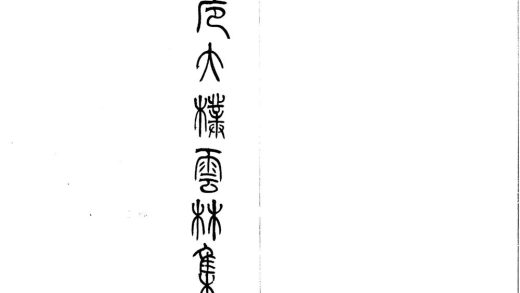 危大樸雲林集